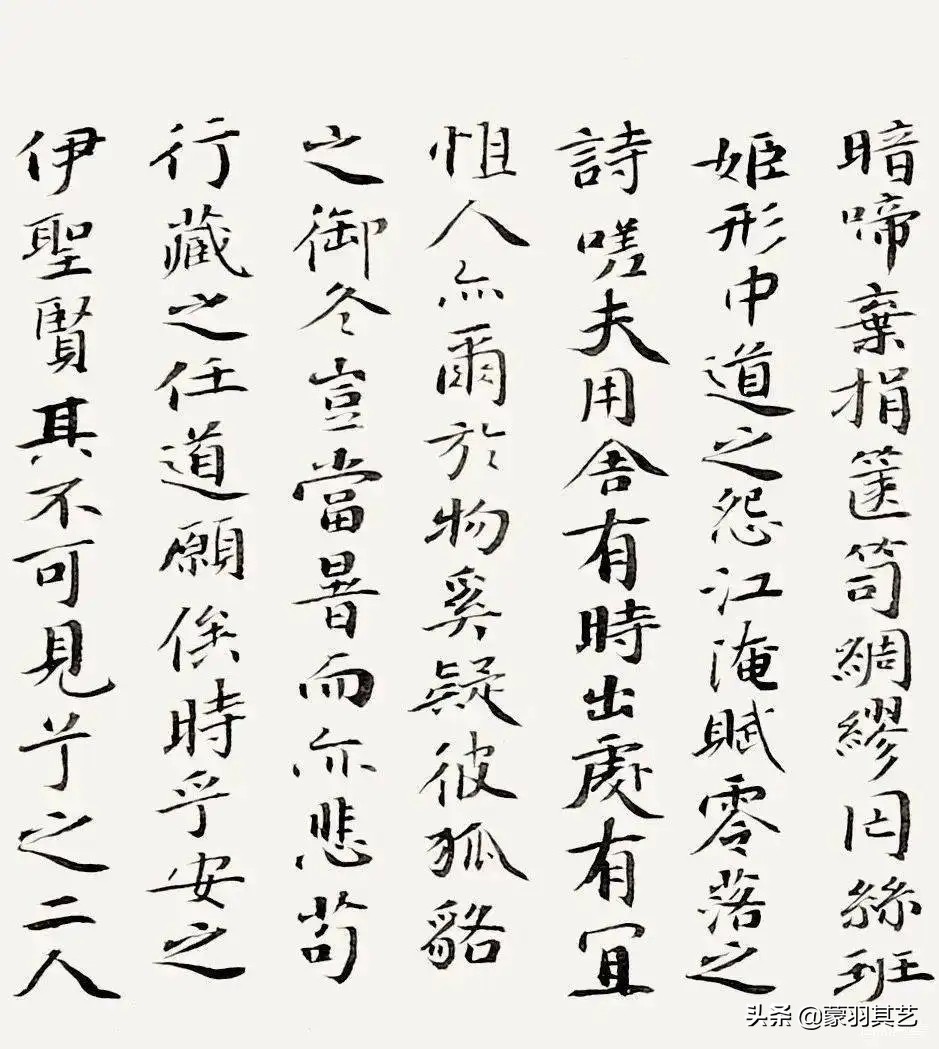 暗啼棄捐篋笥綢繆罔絲班
姬形中道之怨江淹賦零落之
詩嗟夫用舍有時出處有宜
怚人亦爾於物奚疑彼狐貉
之御冬豈當暑而亦悲苟
行藏之任道願俟時乎安之
伊聖賢其不可見兮之二人
头条 @蒙羽其艺